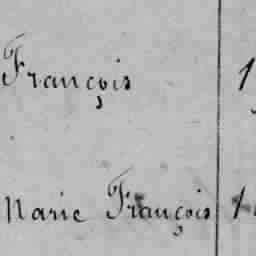 François 1
Marie François 1